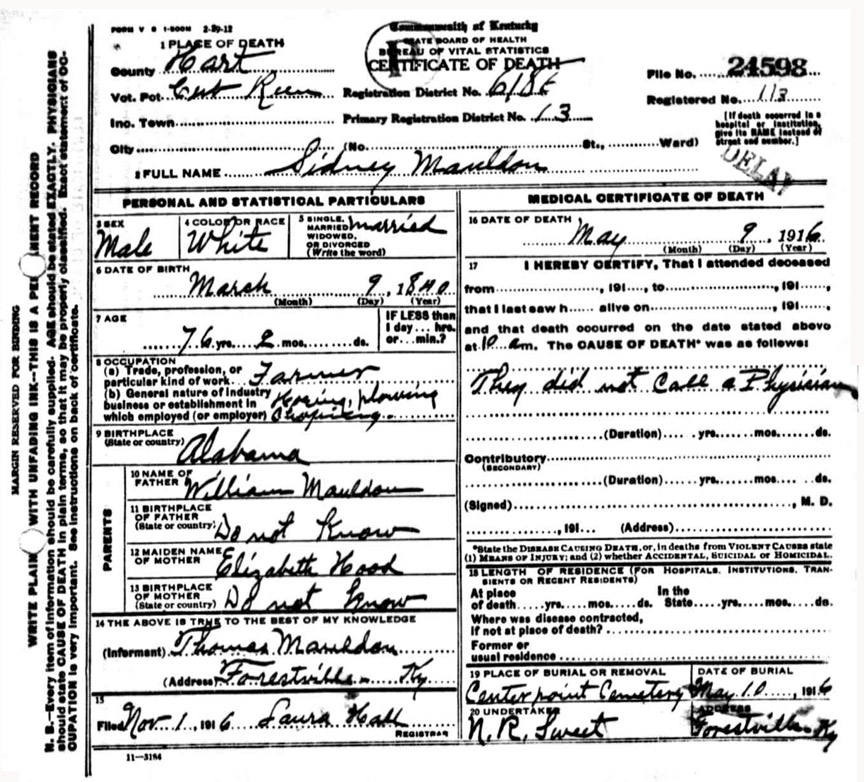 FORM V S 1-500M 2-29-12
Commonwealth of Kentucky
STATE BOARD OF HEALTH
BUREAU OF VITAL STATISTICS
CERTIFICATE OF DEATH
1 PLACE OF DEATH
County Hart
Vot. Pct.
Inc. Town
City (No. St., Ward)
Registration District No.
Primary Registration District No. 13
File No. 24598
Registered No. 113
[If death occurred in a
hospital or institution,
give its NAME instead of
street and number.]
DELAY
2 FULL NAME Sidney Mauldon
PERSONAL AND STATISTICAL PARTICULARS
3 SEX
Male
4 COLOR OR RACE
White
5 SINGLE,
MARRIED,
WIDOWED,
OR DIVORCED
(Write the word)
married
6 DATE OF BIRTH
March 9, 1840
(Month) (Day) (Year)
7 AGE
76 yrs. 2 mos. ds.
IF LESS than
1 day... hrs.
or... min.?
8 OCCUPATION
(a) Trade, profession, or
particular kind of work Farmer
(b) General nature of industry
business or establishment in
which employed (or employer) Hoeing, plowing
9 BIRTHPLACE
(State or country)
Alabama
PARENTS
10 NAME OF
FATHER William Mauldon
11 BIRTHPLACE
OF FATHER
(State or country) Do not Know
12 MAIDEN NAME
OF MOTHER Elizabeth Hood
13 BIRTHPLACE
OF MOTHER
(State or country) Do not Know
14 THE ABOVE IS TRUE TO THE BEST OF MY KNOWLEDGE
(Informant) Thomas Mauldon
(Address) Forestville Ky
15
Filed Nov. 1, 1916 Laura Hall
REGISTRAR
11-3184
MEDICAL CERTIFICATE OF DEATH
16 DATE OF DEATH
May 9, 1916
(Month) (Day) (Year)
17 I HEREBY CERTIFY, That I attended deceased
from , 191 , to , 191 ,
that I last saw h alive on , 191 ,
and that death occurred on the date stated above
at 10 am. The CAUSE OF DEATH* was as follows:
They did not call a Physician
(Duration) yrs. mos. ds.
Contributory
(SECONDARY)
(Duration) yrs. mos. ds.
(Signed) , M. D.
, 191 (Address)
*State the DISEASE CAUSING DEATH, or, in deaths from VIOLENT CAUSES state
(1) MEANS OF INJURY; and (2) whether ACCIDENTAL, SUICIDAL or HOMICIDAL.
18 LENGTH OF RESIDENCE (FOR HOSPITALS, INSTITUTIONS, TRAN-
SIENTS OR RECENT RESIDENTS)
At place
of death yrs. mos. ds.
In the
State yrs. mos. ds.
Where was disease contracted,
if not at place of death?
Former or
usual residence
19 PLACE OF BURIAL OR REMOVAL
Center point Cemetery
DATE OF BURIAL
May 10, 1916
20 UNDERTAKER
N. R. Sweet
ADDRESS
Forestville Ky
MARGIN RESERVED FOR BINDING
WRITE PLAIN WITH UNFADING INK—THIS IS A PE NENT RECORD
N. B.—Every item of information should be carefully supplied. AGE should be stated EXACTLY. PHYSICIANS
should state CAUSE OF DEATH in plain terms, so that it may be properly classified. Exact statement of OC-
CUPATION is very important. See instructions on back of certificate.